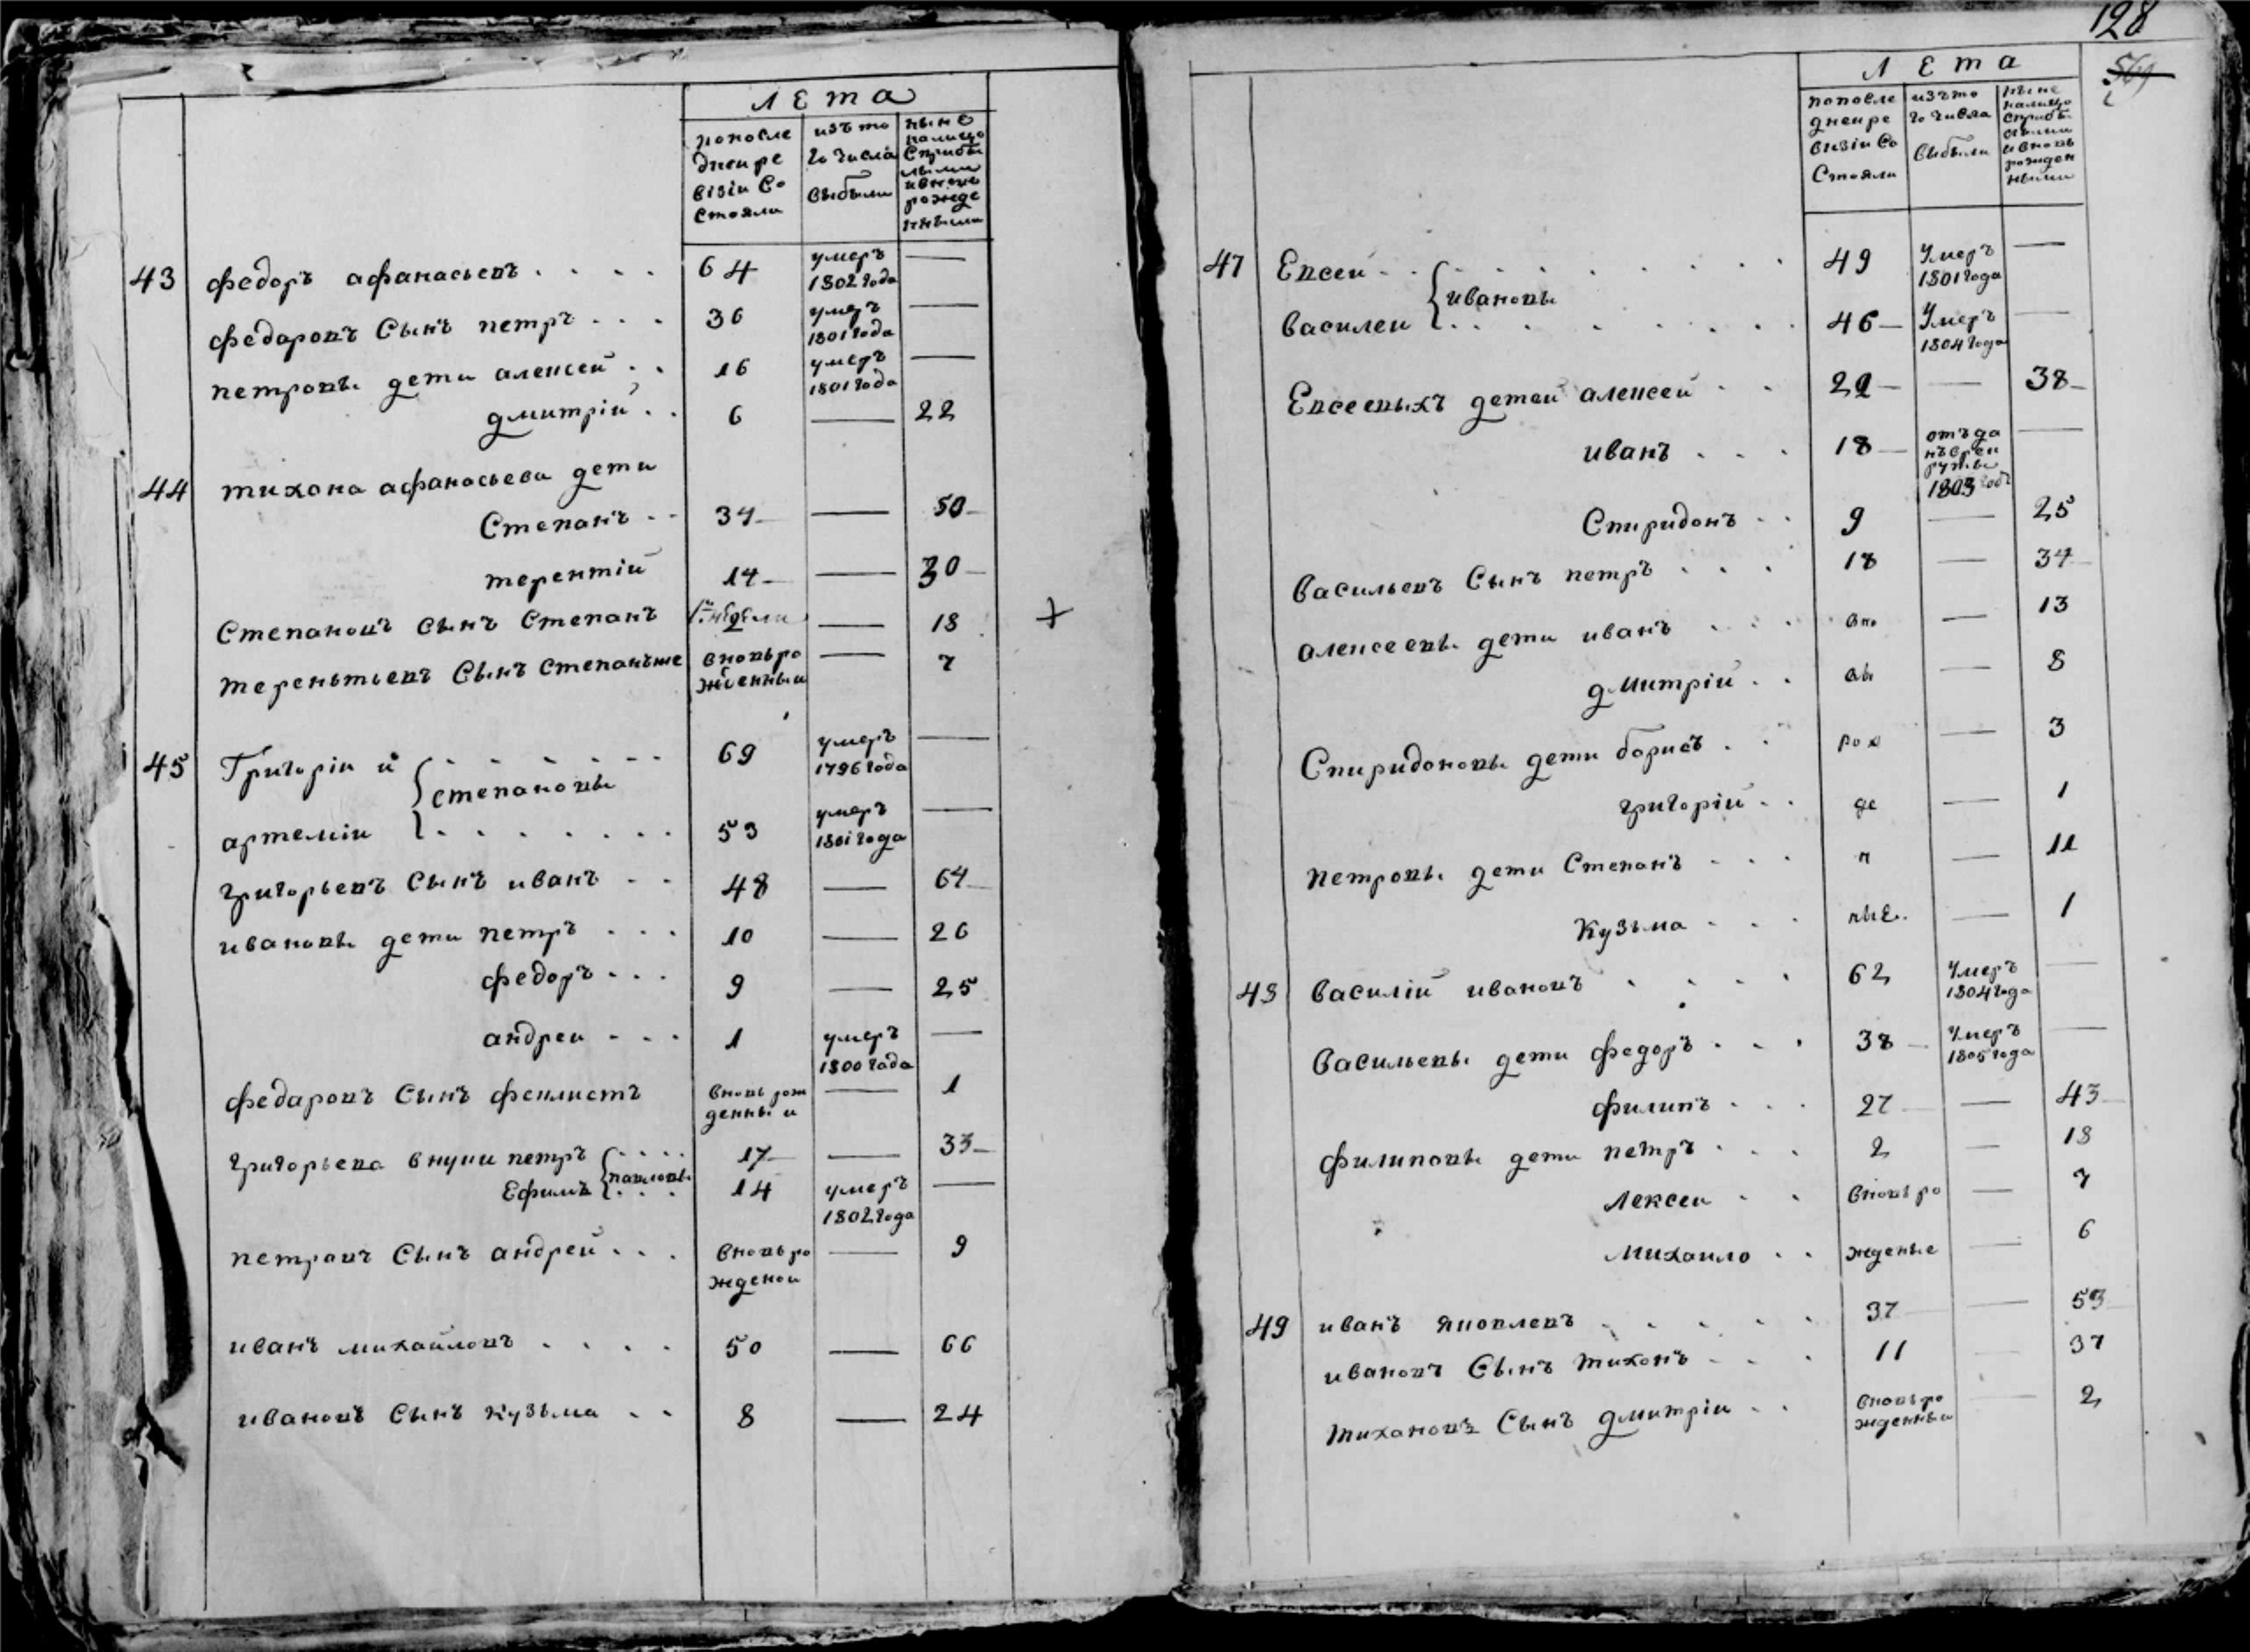 128
лета
попосле
днеи ре
візіи со
стояли
изъ то
го числа
выбыли
ныне
налицо
с прибы
лыми
и вновь
рожде
нными
43 федоръ афанасьевъ . . . . 64 умеръ 1802 года —
федаровъ сынъ петръ . . . 36 умеръ 1801 года —
петровы дети алексей . . 16 умеръ 1801 года —
дмитрій . . 6 — 22
44 тихона афанасьева дети
Степанъ . . 34 — 50
терентій 14 — 30
степановъ сынъ степанъ 2 — 18
терентьевъ сынъ степанъ же вновь рожденныи — 7
45 Григоріи и . . . . . . 69 умеръ 1796 года —
степановы
артеміи . . . . . . . 53 умеръ 1801 года —
григорьевъ сынъ иванъ . . 48 — 64
ивановы дети петръ . . . 10 — 26
федоръ . . . 9 — 25
андреи . . . 1 умеръ 1800 года —
федаровъ сынъ феклистъ вновь рожденны и — 1
григорьева внуки петръ . . . . 17 — 33
павловы
Ефимъ . . . 14 умеръ 1802 года —
петровъ сынъ андрей . . . вновь рожденои — 9
иванъ михайловъ . . . . 50 — 66
ивановъ сынъ кузьма . . 8 — 24
лета
попосле
днеи ре
визіи со
стояли
изъ то
го числа
выбыли
ныне
налицо
с прибы
лыми
и вновь
рожден
ными
47 Евсеи . . . . . . . . 49 Умеръ 1801 года —
ивановы
василеи . . . . . . . . 46 Умеръ 1804 года —
Евсеевыхъ детеи алексеи . . 22 — 38
иванъ . . . 18 отъда нъ врек руты 1803 годъ —
Спиридонъ . . 9 — 25
васильевъ сынъ петръ . . . 18 — 34
алексеевы дети иванъ . . . вно — 13
дмитріи . . вь — 8
Спиридоновы дети борисъ . . рож — 3
григорій . . де — 1
петровы дети Степанъ . . . н — 11
Кузьма . . . ные. — 1
48 василій ивановъ . . . . 62 Умеръ 1804 года —
васильевы дети федоръ . . . 38 Умеръ 1805 года —
филипъ . . . 27 — 43
филиповы дети петръ . . . 2 — 18
лексеи . . вновь ро — 7
михаило . . жденые — 6
49 иванъ яковлевъ . . . . . 37 — 53
ивановъ сынъ тихонъ . . . 11 — 37
тихановъ сынъ дмитріи . . вновь рожденны — 2